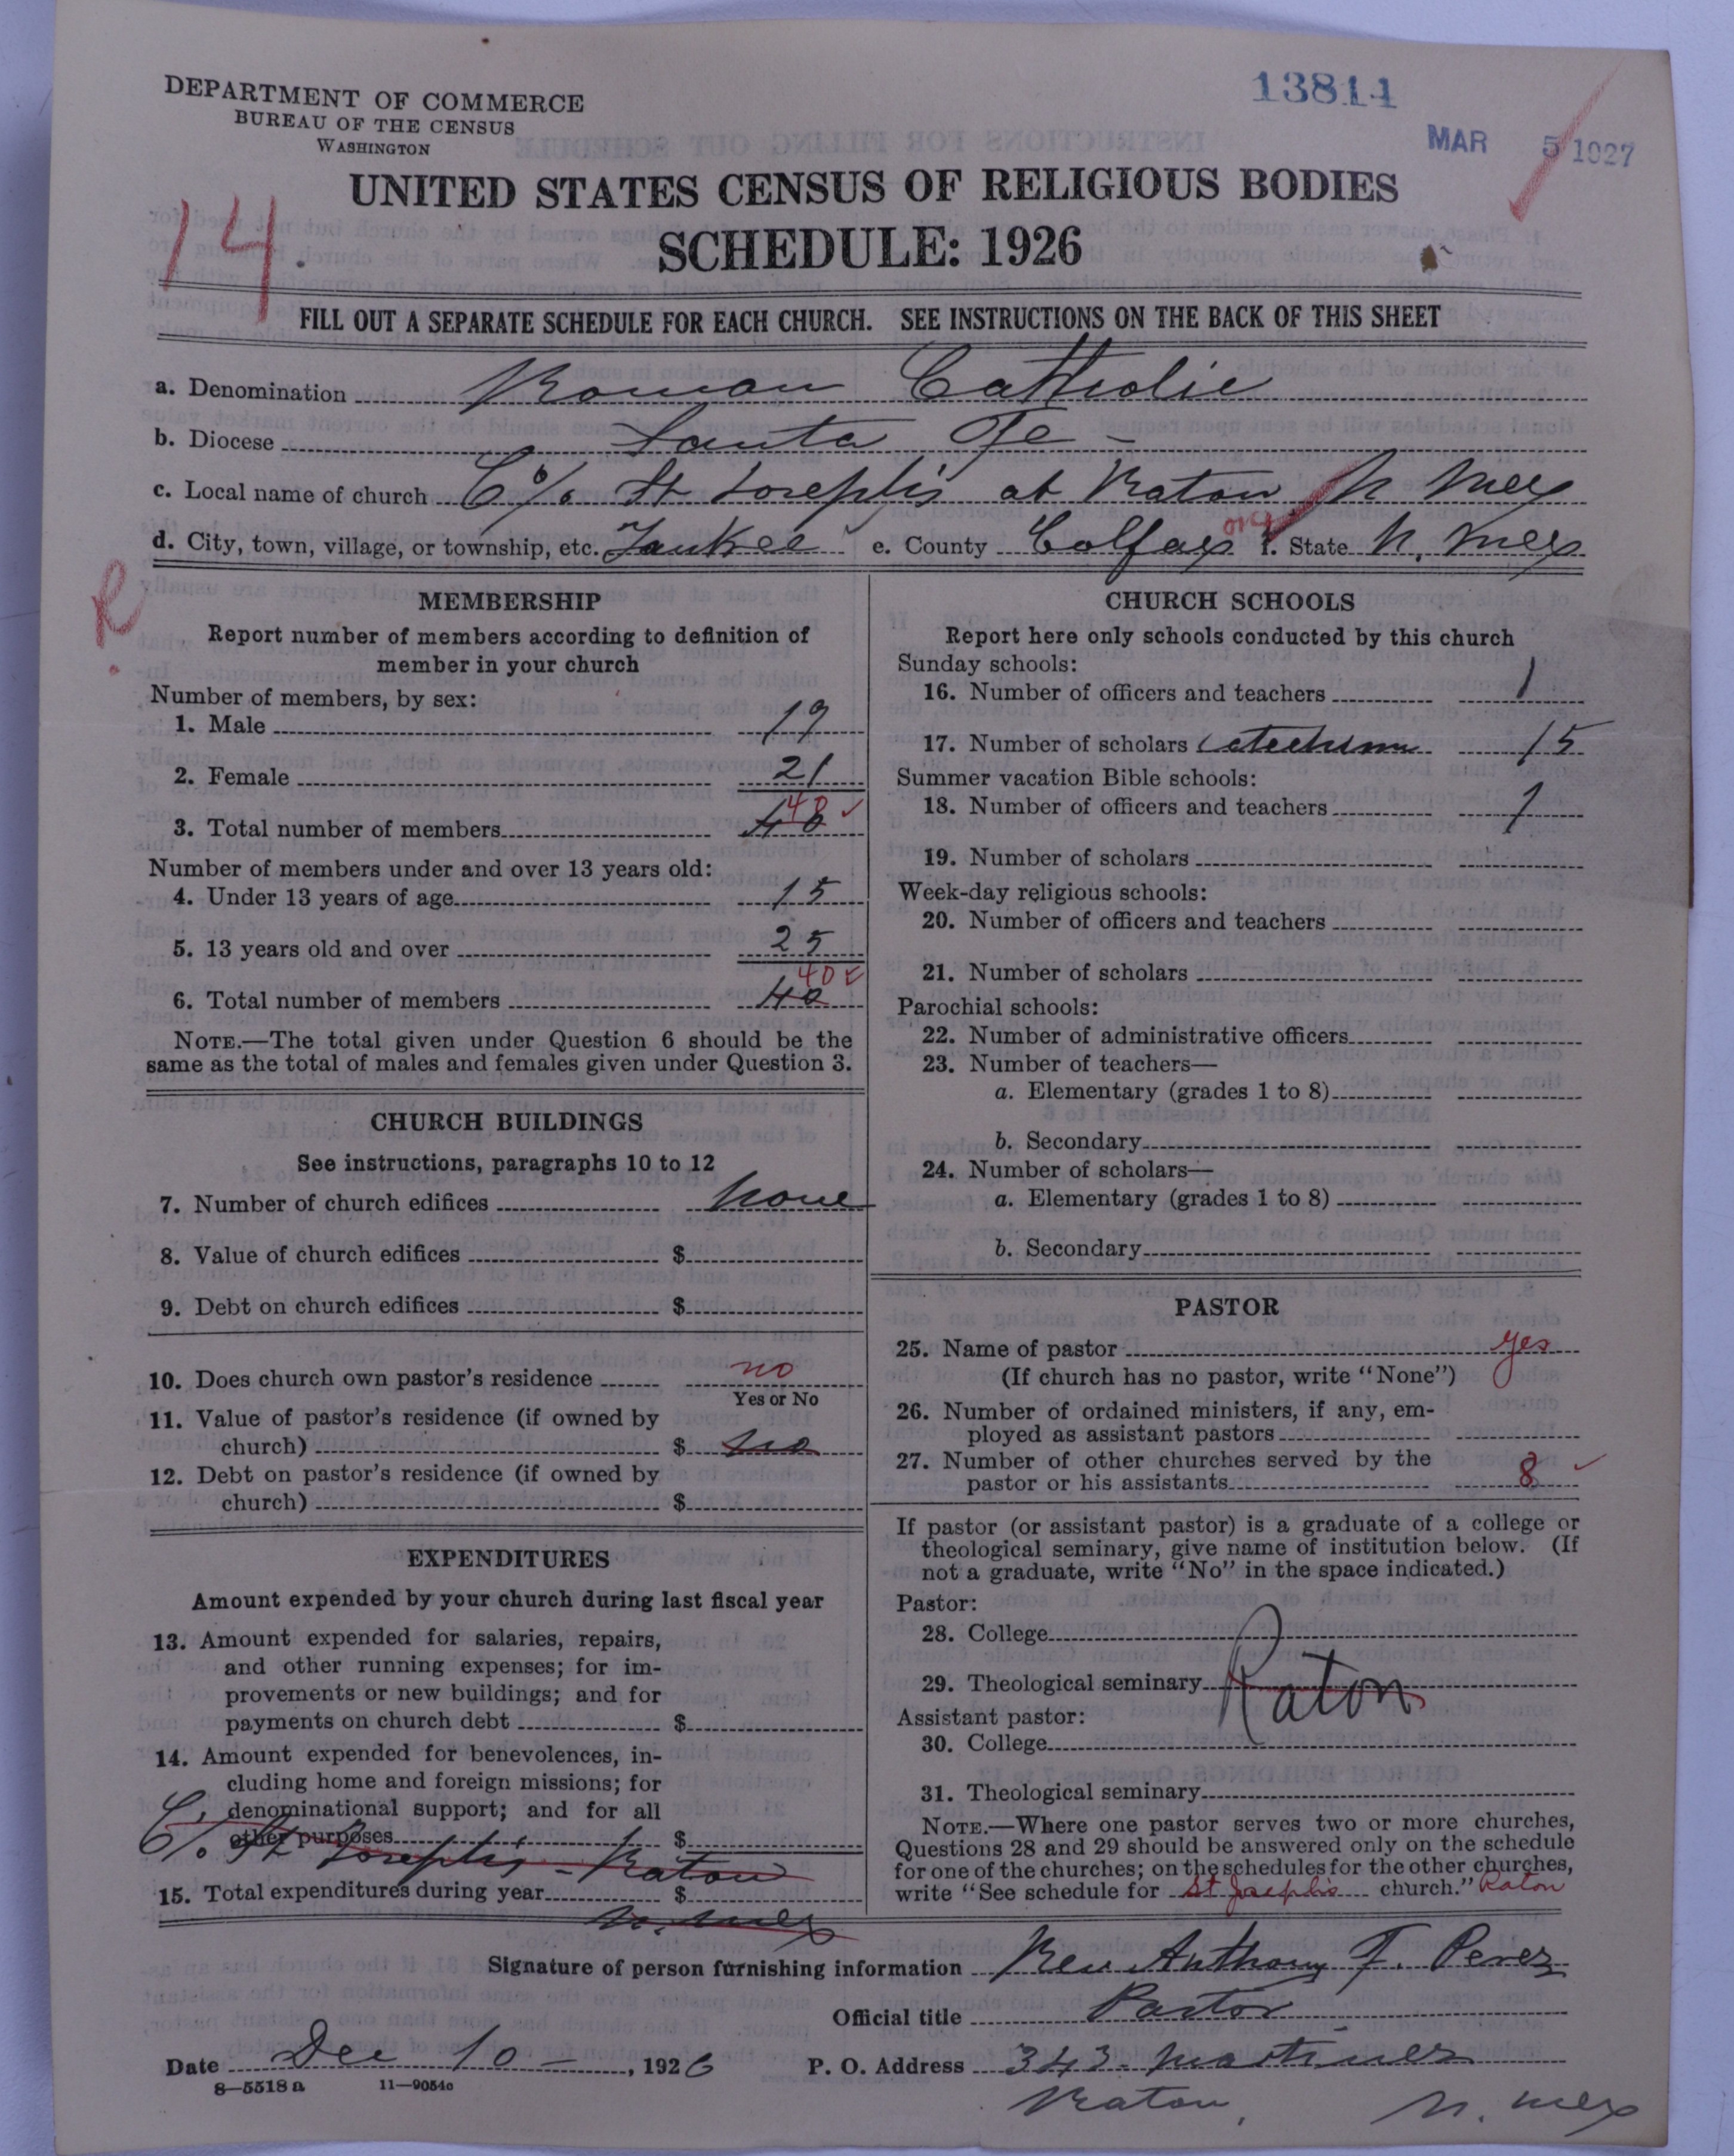 DEPARTMENT OF COMMERCE
BUREAU OF THE CENSUS
WASHINGTON
13814
MAR 5 1927
UNITED STATES CENSUS OF RELIGIOUS BODIES
14
SCHEDULE: 1926
FILL OUT A SEPARATE SCHEDULE FOR EACH CHURCH. SEE INSTRUCTIONS ON THE BACK OF THIS SHEET
a. Denomination Roman Catholic
b. Diocese Santa Fe -
c. Local name of church C/o St Joseph's at Raton N Mex
d. City, town, village, or township, etc. Yankee e. County Colfax f. State N. Mex
R
MEMBERSHIP
Report number of members according to definition of
member in your church
Number of members, by sex:
1. Male 19
2. Female 21
40
3. Total number of members 40
Number of members under and over 13 years old:
4. Under 13 years of age 15
5. 13 years old and over 25
40
6. Total number of members 40
NOTE.—The total given under Question 6 should be the
same as the total of males and females given under Question 3.
CHURCH BUILDINGS
See instructions, paragraphs 10 to 12
7. Number of church edifices None
8. Value of church edifices $
9. Debt on church edifices $
10. Does church own pastor's residence no
Yes or No
11. Value of pastor's residence (if owned by
church) $ no
12. Debt on pastor's residence (if owned by
church) $
EXPENDITURES
Amount expended by your church during last fiscal year
13. Amount expended for salaries, repairs,
and other running expenses; for im-
provements or new buildings; and for
payments on church debt $
14. Amount expended for benevolences, in-
cluding home and foreign missions; for
denominational support; and for all
other purposes $
C/o St Joseph's - Raton
15. Total expenditures during year $
N. Mex
CHURCH SCHOOLS
Report here only schools conducted by this church
Sunday schools:
16. Number of officers and teachers 1
17. Number of scholars Catechism 15
Summer vacation Bible schools:
18. Number of officers and teachers 1
19. Number of scholars
Week-day religious schools:
20. Number of officers and teachers
21. Number of scholars
Parochial schools:
22. Number of administrative officers
23. Number of teachers—
a. Elementary (grades 1 to 8)
b. Secondary
24. Number of scholars—
a. Elementary (grades 1 to 8)
b. Secondary
PASTOR
25. Name of pastor yes
(If church has no pastor, write "None")
26. Number of ordained ministers, if any, em-
ployed as assistant pastors
27. Number of other churches served by the
pastor or his assistants 8
If pastor (or assistant pastor) is a graduate of a college or
theological seminary, give name of institution below. (If
not a graduate, write "No" in the space indicated.)
Pastor:
28. College
29. Theological seminary Raton
Assistant pastor:
30. College
31. Theological seminary
NOTE.—Where one pastor serves two or more churches,
Questions 28 and 29 should be answered only on the schedule
for one of the churches; on the schedules for the other churches,
write "See schedule for St Joseph's church." Raton
Signature of person furnishing information Rev Anthony F. Perez
Official title Pastor
Date Dec 10 - , 1926 P. O. Address 343 Martinez
8—5518 a 11—9054o
Raton, N. Mex